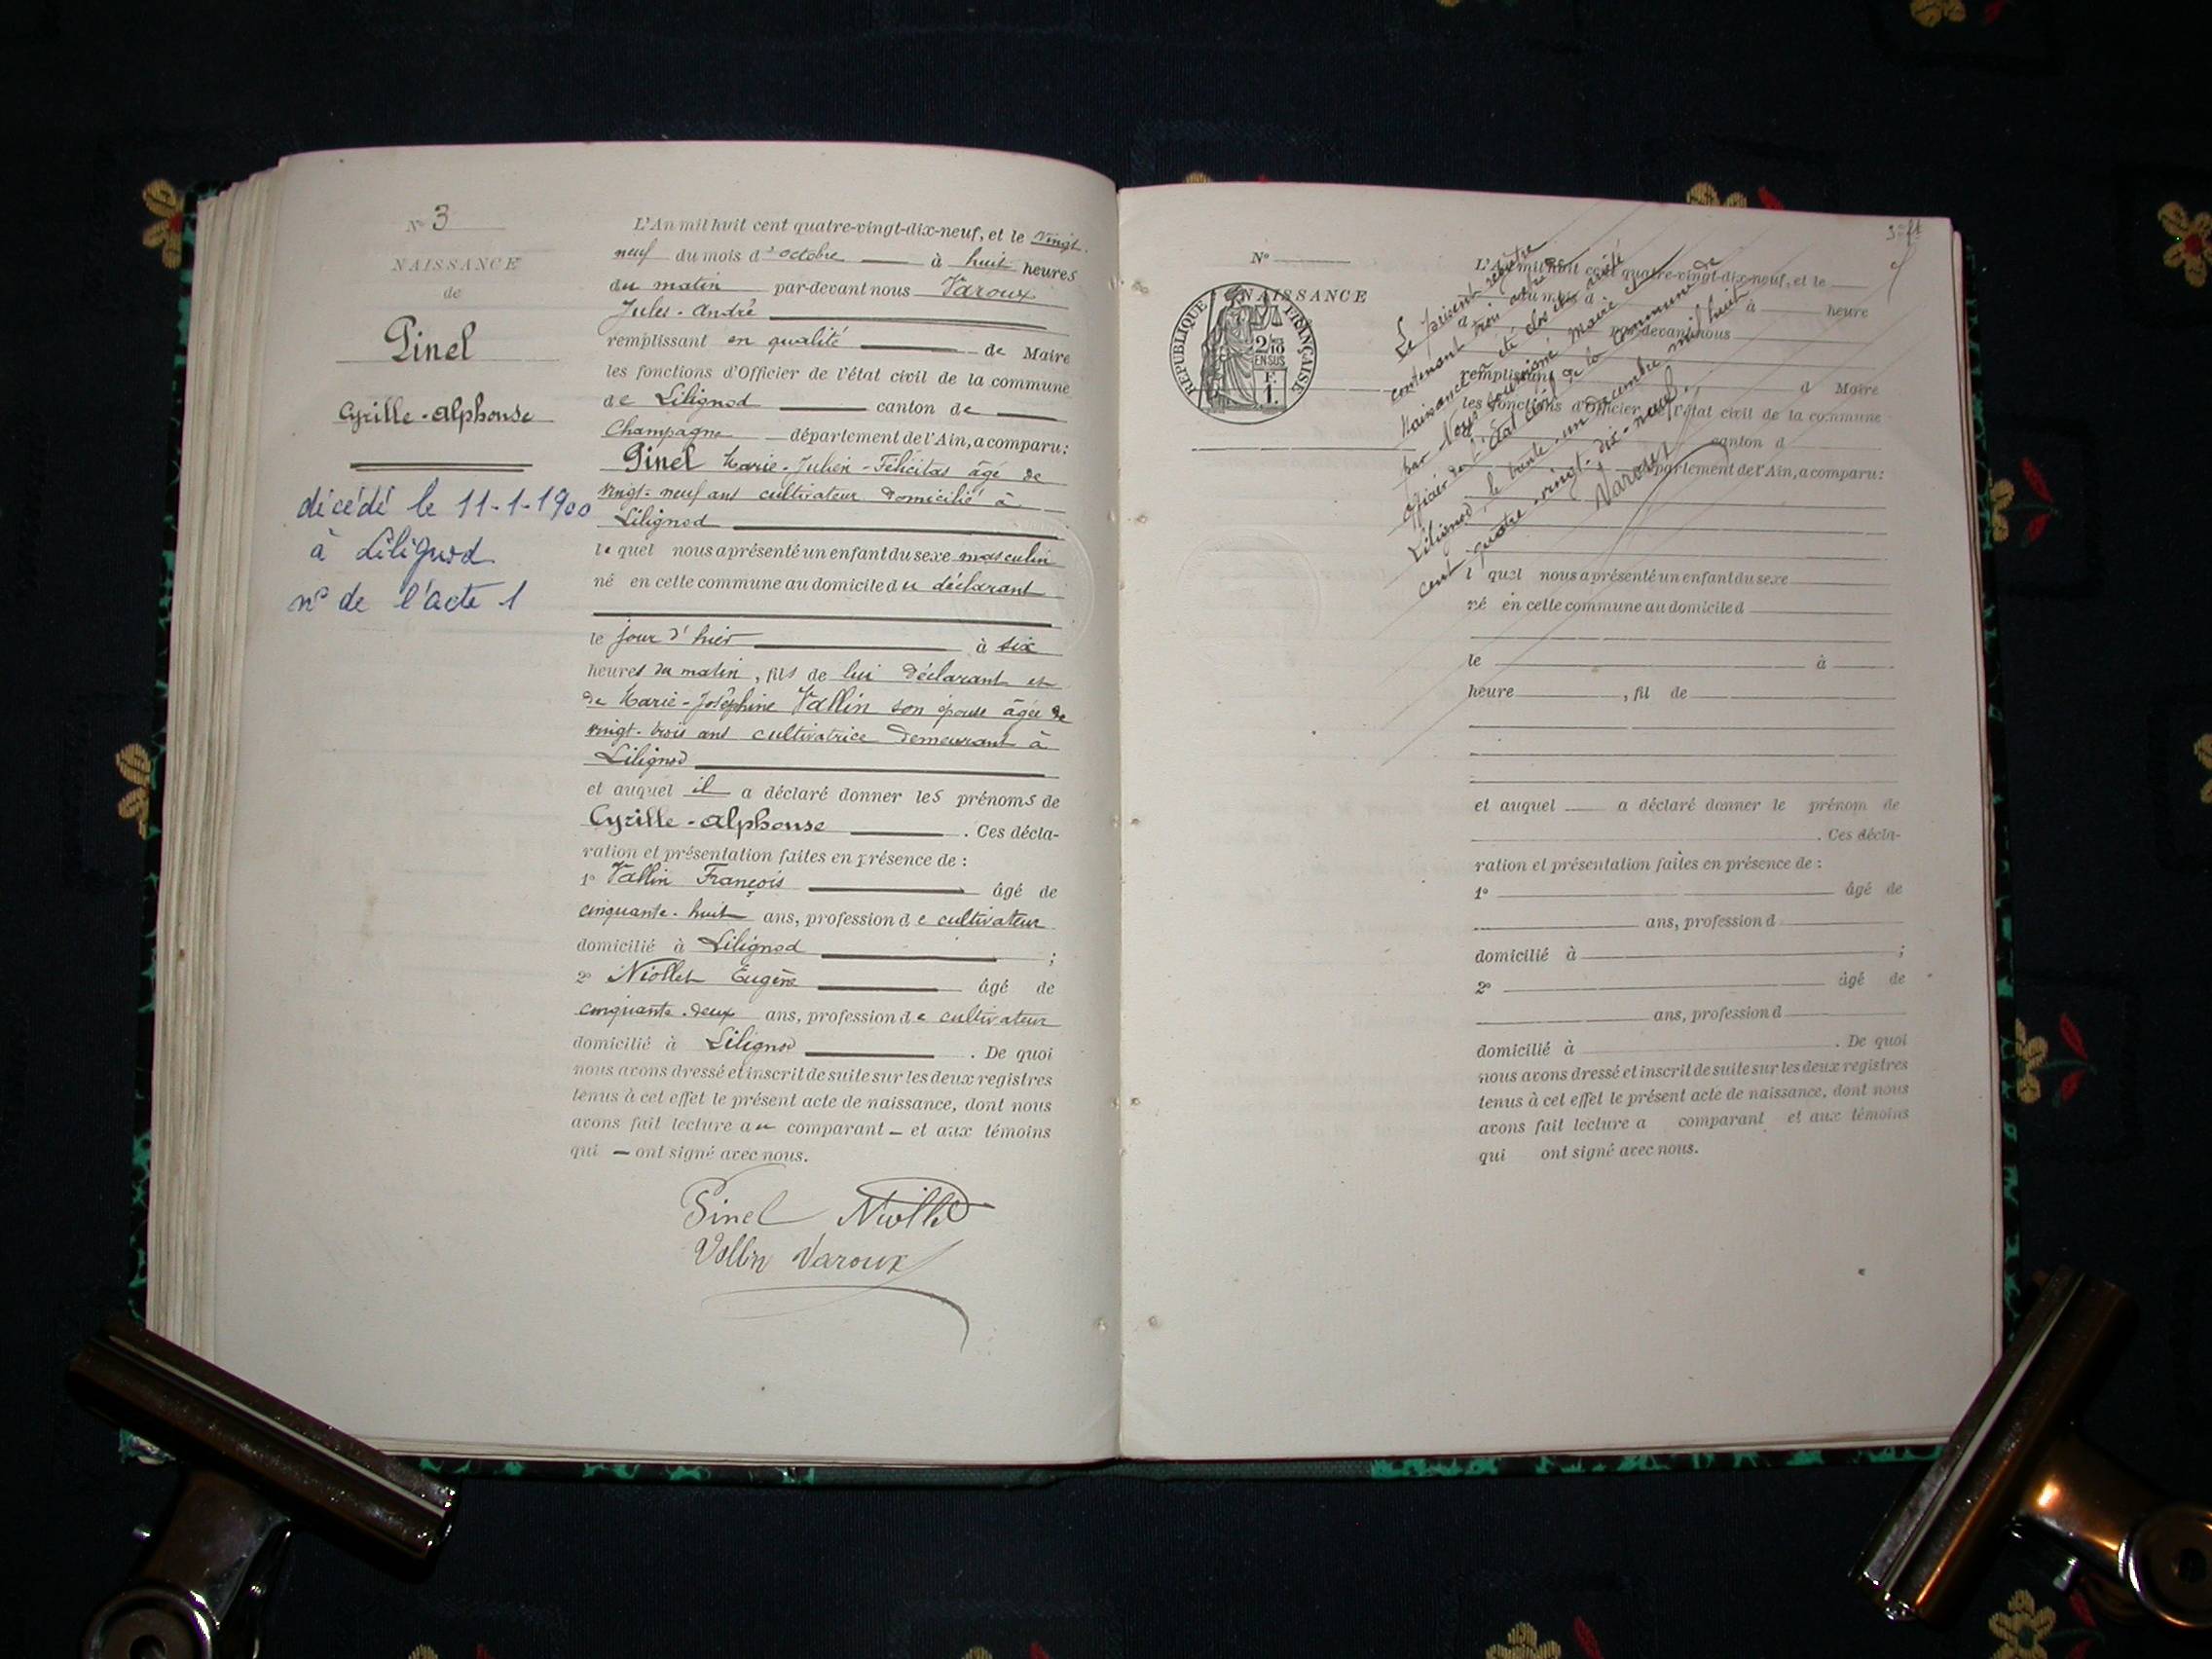 N° 3
NAISSANCE
de
Pinel
Cyrille-Alphonse
décédé le 11-1-1900
à Lilignod
n° de l'acte 1
L'An mil huit cent quatre-vingt-dix-neuf, et le vingt-
neuf du mois d'octobre à huit heures
du matin par-devant nous Varoux
Jules-André
remplissant en qualité de Maire
les fonctions d'Officier de l'état civil de la commune
de Lilignod canton de
Champagne département de l'Ain, a comparu:
Pinel Marie-Julien-Félicitas âgé de
vingt-neuf ans cultivateur domicilié à
Lilignod
lequel nous a présenté un enfant du sexe masculin
né en cette commune au domicile du déclarant
le jour d'hier à six
heures du matin, fils de lui déclarant et
de Marie-Joséphine Vallin son épouse âgée de
vingt-trois ans cultivatrice demeurant à
Lilignod
et auquel il a déclaré donner les prénoms de
Cyrille-Alphonse. Ces décla-
ration et présentation faites en présence de :
1° Vallin François âgé de
cinquante-huit ans, profession de cultivateur
domicilié à Lilignod ;
2° Niollet Eugène âgé de
cinquante-deux ans, profession de cultivateur
domicilié à Lilignod. De quoi
nous avons dressé et inscrit de suite sur les deux registres
tenus à cet effet le présent acte de naissance, dont nous
avons fait lecture au comparant et aux témoins
qui ont signé avec nous.
Pinel Niollet
Vallin Varoux
N°
NAISSANCE
RÉPUBLIQUE FRANÇAISE
2/10
EN SUS
E
1.
L'An mil huit cent quatre-vingt-dix-neuf, et le
du mois d à heure
par-devant nous
remplissant d Maire
les fonctions d'Officier de l'état civil de la commune
canton d
département de l'Ain, a comparu:
Le présent registre
contenant trois actes de
naissance a été clos et arrêté
par Nous soussigné Maire
officier de l'état civil de la commune de
Lilignod, le trente-un décembre mil huit
cent quatre-vingt-dix-neuf.
Varoux
l quel nous a présenté un enfant du sexe
né en cette commune au domicile d
le à
heure , fil de
et auquel a déclaré donner le prénom de
. Ces décla-
ration et présentation faites en présence de :
1° âgé de
ans, profession d
domicilié à ;
2° âgé de
ans, profession d
domicilié à . De quoi
nous avons dressé et inscrit de suite sur les deux registres
tenus à cet effet le présent acte de naissance, dont nous
avons fait lecture a comparant et aux témoins
qui ont signé avec nous.